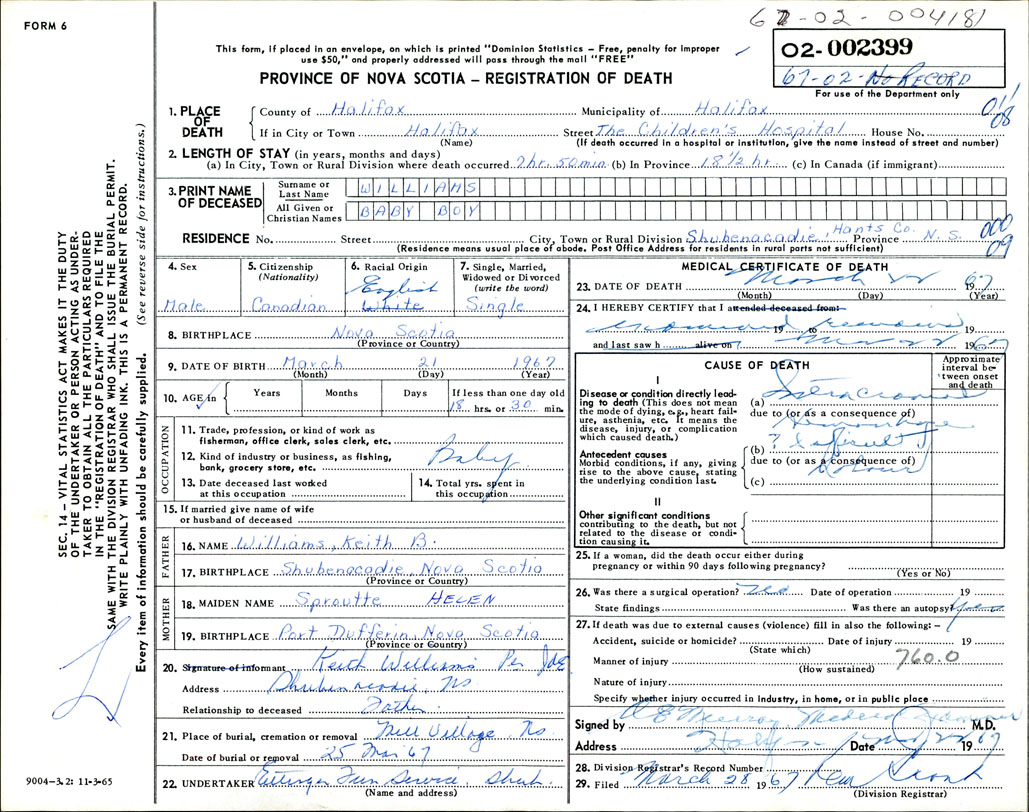 FORM 6
67-02-004181
02-002399
67-02-No RECORD
For use of the Department only
This form, if placed in an envelope, on which is printed "Dominion Statistics – Free, penalty for improper
use $50," and properly addressed will pass through the mail "FREE"
PROVINCE OF NOVA SCOTIA – REGISTRATION OF DEATH
SEC. 14 – VITAL STATISTICS ACT MAKES IT THE DUTY
OF THE UNDERTAKER OR PERSON ACTING AS UNDER-
TAKER TO OBTAIN ALL THE PARTICULARS REQUIRED
IN THE "REGISTRATION OF DEATH" AND TO FILE THE
SAME WITH THE DIVISION REGISTRAR WHO SHALL ISSUE THE BURIAL PERMIT.
WRITE PLAINLY WITH UNFADING INK. THIS IS A PERMANENT RECORD.
Every item of information should be carefully supplied. (See reverse side for instructions.)
1. PLACE OF DEATH
County of Halifax Municipality of Halifax
011
08
If in City or Town Halifax Street The Children's Hospital House No.
(Name) (If death occurred in a hospital or institution, give the name instead of street and number)
2. LENGTH OF STAY (in years, months and days)
(a) In City, Town or Rural Division where death occurred 7hr. 50min. (b) In Province 18½ hr. (c) In Canada (if immigrant)
3. PRINT NAME OF DECEASED
Surname or Last Name WILLIAMS
All Given or Christian Names BABY BOY
RESIDENCE No. Street City, Town or Rural Division Shubenacadie, Hants Co. Province N.S.
000
09
(Residence means usual place of abode. Post Office Address for residents in rural parts not sufficient)
4. Sex
Male
5. Citizenship
(Nationality)
Canadian
6. Racial Origin
English
White
7. Single, Married,
Widowed or Divorced
(write the word)
Single
8. BIRTHPLACE Nova Scotia
(Province or Country)
9. DATE OF BIRTH March 21 1967
(Month) (Day) (Year)
10. AGE in Years Months Days If less than one day old
18 hrs. or 30 min.
OCCUPATION
11. Trade, profession, or kind of work as
fisherman, office clerk, sales clerk, etc.
Baby
12. Kind of industry or business, as fishing,
bank, grocery store, etc.
13. Date deceased last worked
at this occupation
14. Total yrs. spent in
this occupation
15. If married give name of wife
or husband of deceased
FATHER
16. NAME Williams, Keith B.
17. BIRTHPLACE Shubenacadie, Nova Scotia
(Province or Country)
MOTHER
18. MAIDEN NAME Sproutte HELEN
19. BIRTHPLACE Port Dufferin, Nova Scotia
(Province or Country)
20. Signature of informant Keith Williams Per
Address Shubenacadie, NS
Relationship to deceased Father
21. Place of burial, cremation or removal Mill Village, NS
Date of burial or removal 25 Mar 67
22. UNDERTAKER Ettinger Fun Service Shub.
(Name and address)
9004–3.2: 11-3-65
MEDICAL CERTIFICATE OF DEATH
23. DATE OF DEATH March 22 1967
(Month) (Day) (Year)
24. I HEREBY CERTIFY that I attended deceased from:
19 to 19
and last saw h alive on March 22 1967
CAUSE OF DEATH
Approximate
interval be-
tween onset
and death
I
Disease or condition directly lead-
ing to death (This does not mean
the mode of dying, e.g., heart fail-
ure, asthenia, etc. It means the
disease, injury, or complication
which caused death.)
(a) Intracranial
due to (or as a consequence of)
Hemorrhage
Antecedent causes
Morbid conditions, if any, giving
rise to the above cause, stating
the underlying condition last.
(b) ? difficult
due to (or as a consequence of)
labour
(c)
II
Other significant conditions
contributing to the death, but not
related to the disease or condi-
tion causing it.
25. If a woman, did the death occur either during
pregnancy or within 90 days following pregnancy?
(Yes or No)
26. Was there a surgical operation? No Date of operation 19
State findings Was there an autopsy? Yes
27. If death was due to external causes (violence) fill in also the following: –
Accident, suicide or homicide? Date of injury 19
(State which)
Manner of injury 760.0
(How sustained)
Nature of injury
Specify whether injury occurred in Industry, in home, or in public place
Signed by Murray Medical Examiner M.D.
Address Date 22 1967
28. Division Registrar's Record Number
29. Filed March 28 1967
(Division Registrar)